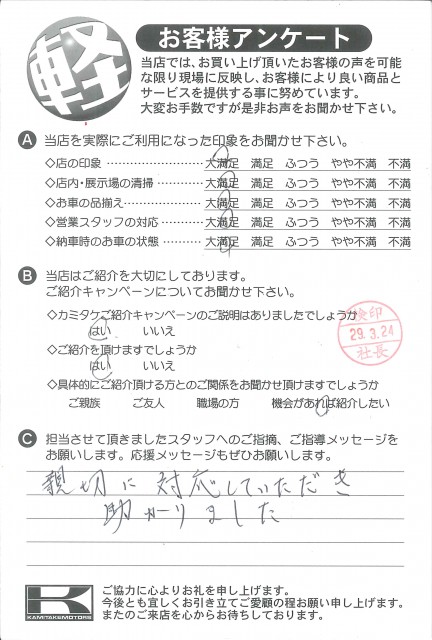 軽
お客様アンケート
当店では、お買い上げ頂いたお客様の声を可能
な限り現場に反映し、お客様により良い商品と
サービスを提供する事に努めています。
大変お手数ですが是非お声をお聞かせ下さい。
A 当店を実際にご利用になった印象をお聞かせ下さい。
◇店の印象 大満足 満足 ふつう やや不満 不満
◇店内・展示場の清掃 大満足 満足 ふつう やや不満 不満
◇お車の品揃え 大満足 満足 ふつう やや不満 不満
◇営業スタッフの対応 大満足 満足 ふつう やや不満 不満
◇納車時のお車の状態 大満足 満足 ふつう やや不満 不満
B 当店はご紹介を大切にしております。
ご紹介キャンペーンについてお聞かせ下さい。
◇カミタケご紹介キャンペーンのご説明はありましたでしょうか
はい いいえ
◇ご紹介を頂けますでしょうか
はい いいえ
◇具体的にご紹介頂ける方とのご関係をお聞かせ頂けますでしょうか
ご親族 ご友人 職場の方 機会があれば紹介したい
検印
29.3.24
社長
C 担当させて頂きましたスタッフへのご指摘、ご指導メッセージを
お願いします。応援メッセージもぜひお願いします。
親切に対応していただき
助かりました
KAMITAKEMOTORS
ご協力に心よりお礼を申し上げます。
今後とも宜しくお引き立てご愛顧の程お願い申し上げます。
またのご来店を心からお待ちしております。